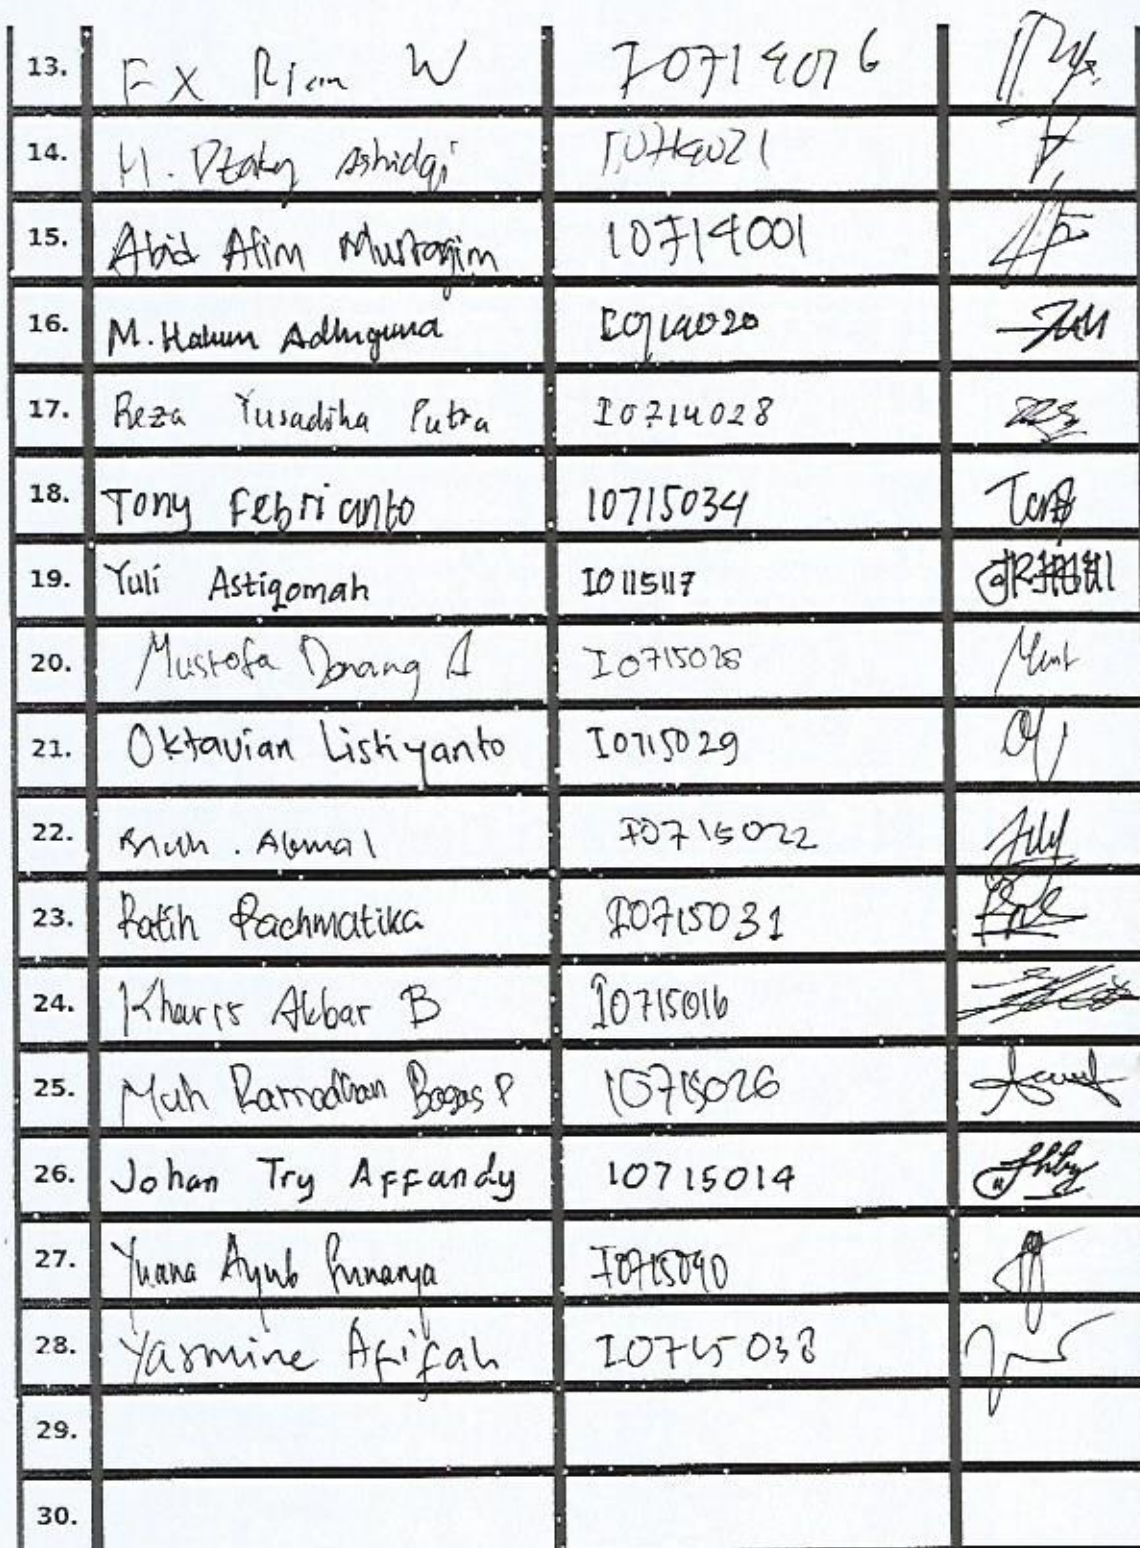 13. FX Rian W I0714016
14. M. Dzaky Ashidqi I0714021
15. Abid Alim Mustaqim I0714001
16. M. Hakim Adhiguna I0714020
17. Reza Yusadika Putra I0714028
18. Tony Febrianto I0715034 Tony
19. Yuli Astiqomah I0115117
20. Mustofa Danang A I0715028
21. Oktavian Listiyanto I0715029
22. Muh. Akmal I0715022
23. Ratih Rachmatika I0715031
24. Kharis Akbar B I0715016
25. Muh Ramadhan Bagas P I0715026
26. Johan Try Affandy I0715014
27. Yuana Ayub I0715040
28. Yasmine Afifah I0715038
29.
30.